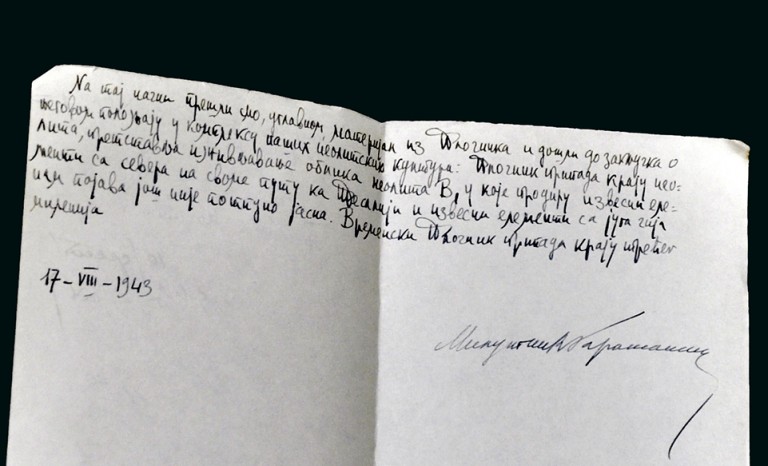 На тај начин прешли смо, углавном, материјал из Плочника и дошли до закључка о
његовом положају у комплексу наших неолитских култура: Плочник припада крају нео-
лита, претставља изживљавање облика неолита B, у које продиру извесни еле-
менти са севера на своме путу ка Тесалији и извесни елементи са југа чија
нам појава још није потпуно јасна. Временски Плочник припада крају трећег
миленија
17-VIII-1943
Милутин Гарашанин